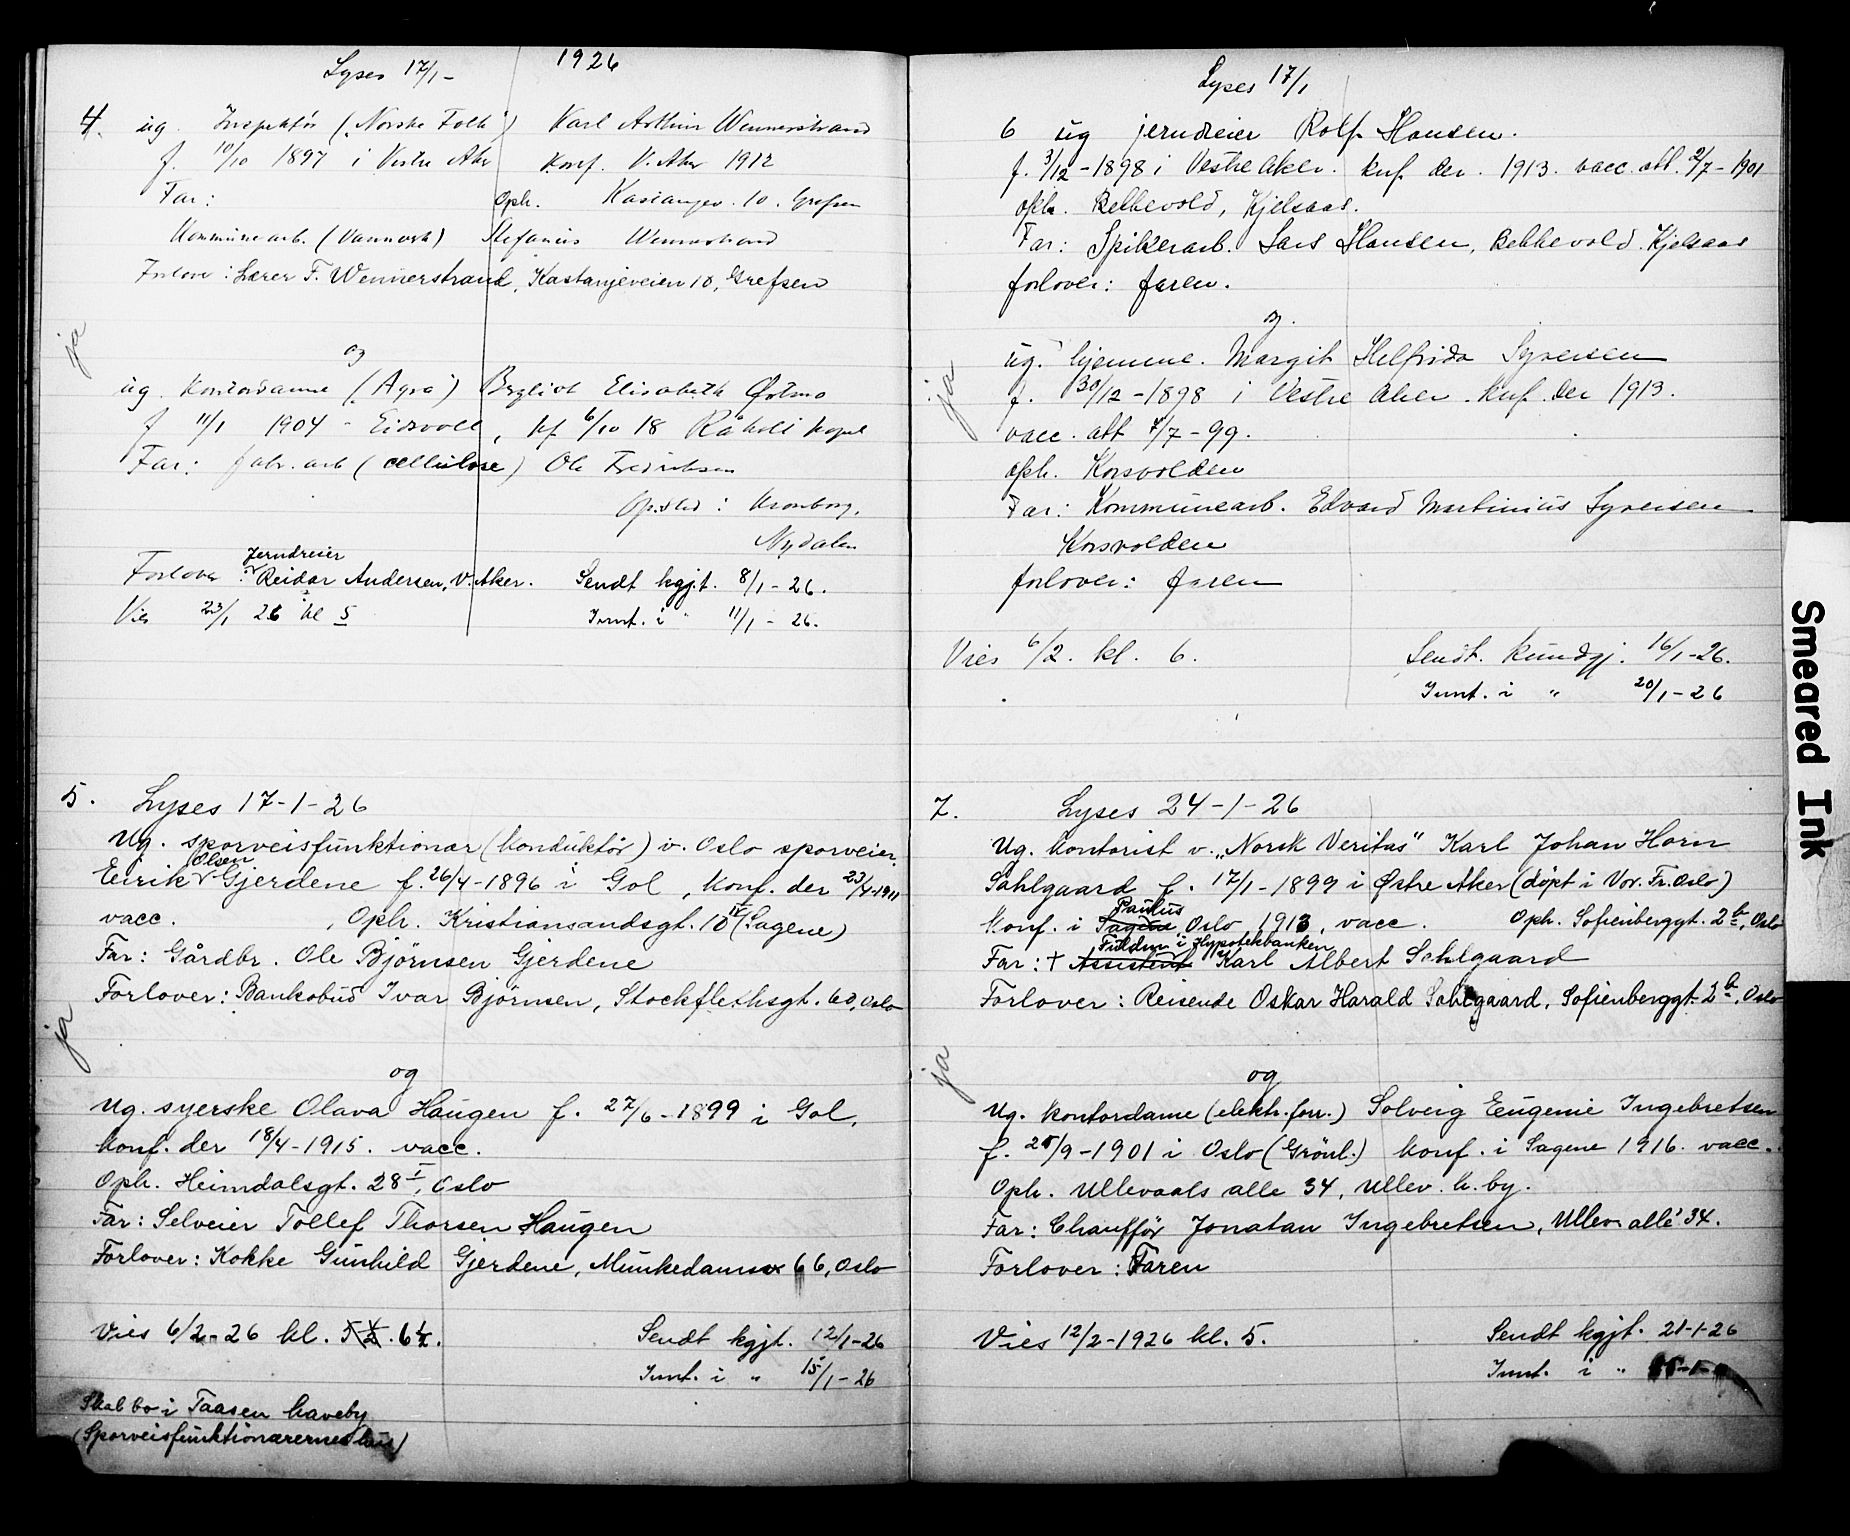 1926
Lyses 17/1 -
4. ug. Inspektör (Norske Folk) Karl Arthur Wennerstrand
f. 10/10 1897 i Vestre Aker konf. V. Aker 1912
Far: Oph. Kastanjev. 10. Grefsen
Kommunearb. (Vannverk) Stefanus Wennerstrand
Forlover: Lærer F. Wennerstrand, Kastanjeveien 10, Grefsen
ja
og
ug. Kontordame (Agra) Bergliot Elisabeth Østmo
f 11/1 1904 - Eidsvoll, kf 6/10 18 Råholt kapel
Far: fabr. arb (cellulose) Ole Fredriksen
Op.sted: Kronborg,
Nydalen
Jerndreier
Forlover: Reidar Andersen, V. Aker. Sendt kgjt. 8/1 - 26.
Vies 23/1 26 kl 5 Innt. i " 11/1 - 26.
5. Lyses 17-1-26
Ug. sporveisfunktionær (konduktör) v. Oslo sporveier.
Olsen
Eirik Gjerdene f. 26/4-1896 i Gol, konf. der 23/4-1911
vacc. , Oph. Kristiansandsgt. 10 IV (Sagene)
Far: Gårdbr. Ole Björnsen Gjerdene
Forlover: Bankobud Ivar Björnsen, Stockflethsgt. 60, Oslo
ja
og
Ug. syerske Olava Haugen f. 27/6-1899 i Gol,
konf. der 18/4-1915. vacc.
Oph. Heimdalsgt. 28 I, Oslo
Far: Selveier Tollef Thorsen Haugen
Forlover: Kokke Gunhild Gjerdene, Munkedamsv 66, Oslo
Vies 6/2-26 kl. 5 1/2. 6 1/2. Sendt kgjt. 12/1-26
Innt. i " 15/1-26
Skal bo i Taasen haveby
(Sporveisfunktionærernes hus)
Lyses 17/1
6 ug jerndreier Rolf Hansen.
f. 3/12-1898 i Vestre Aker. knf. der. 1913. vacc. att. 2/7-1901
oph. Bekkevold, Kjelsaas.
Far: Spikerarb. Lars Hansen, Bekkevold. Kjelsaas
forlover: faren.
og.
ja
ug. hjemme. Margit Helfrida Syversen
f. 30/12-1898 i Vestre Aker. knf. der 1913.
vacc. att 4/7-99.
oph. Korsvolden
Far: Kommunearb. Edvard Martinius Syversen
Korsvolden
forlover: faren
Vies 6/2. kl. 6. Sendt. kundgj. 16/1-26.
Innt. i " 20/1-26
7. Lyses 24-1-26
Ug. kontorist v. "Norsk Veritas" Karl Johan Horn
Sahlgaard f. 17/1-1899 i Østre Aker (döpt i Vor. Fr. Oslo)
Paulus
konf. i Sagene Oslo, 1913, vacc. Oph. Sofienberggt. 2 b, Oslo
Fuldm. i Hypotekbanken
Far: † Assistent Karl Albert Sahlgaard
Forlover: Reisende Oskar Harald Sahlgaard, Sofienberggt. 2 b, Oslo
ja
og
Ug. kontordame (elektr. forr.) Solveig Eugenie Ingebretsen
f. 25/9-1901 i Oslo (Grönl.) konf. i Sagene 1916. vacc.
Oph. Ullevaals alle 34, Ullev. h. by.
Far: Chaufför Jonatan Ingebretsen, Ullev. allé 34.
Forlover: Faren
Vies 12/2-1926 kl. 5. Sendt kgjt. 21-1-26
Innt. i "
Smeared Ink